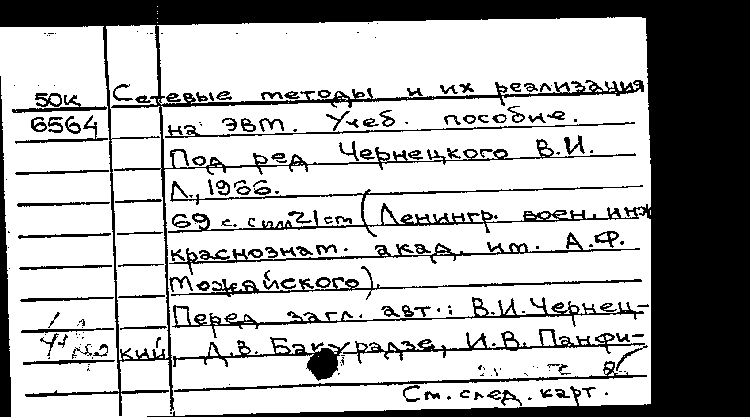 50К Сетевые методы и их реализация
6564 на ЭВМ. Учеб. пособие.
Под ред. Чернецкого В.И.
Л., 1966.
69 с. с илл 21 cm (Ленингр. воен. инж
краснознам. акад. им. А.Ф.
Можайского).
Перед загл. авт.: В.И. Чернец-
кий, Д.В. Бакурадзе, И.В. Панфи-
См. след. карт.